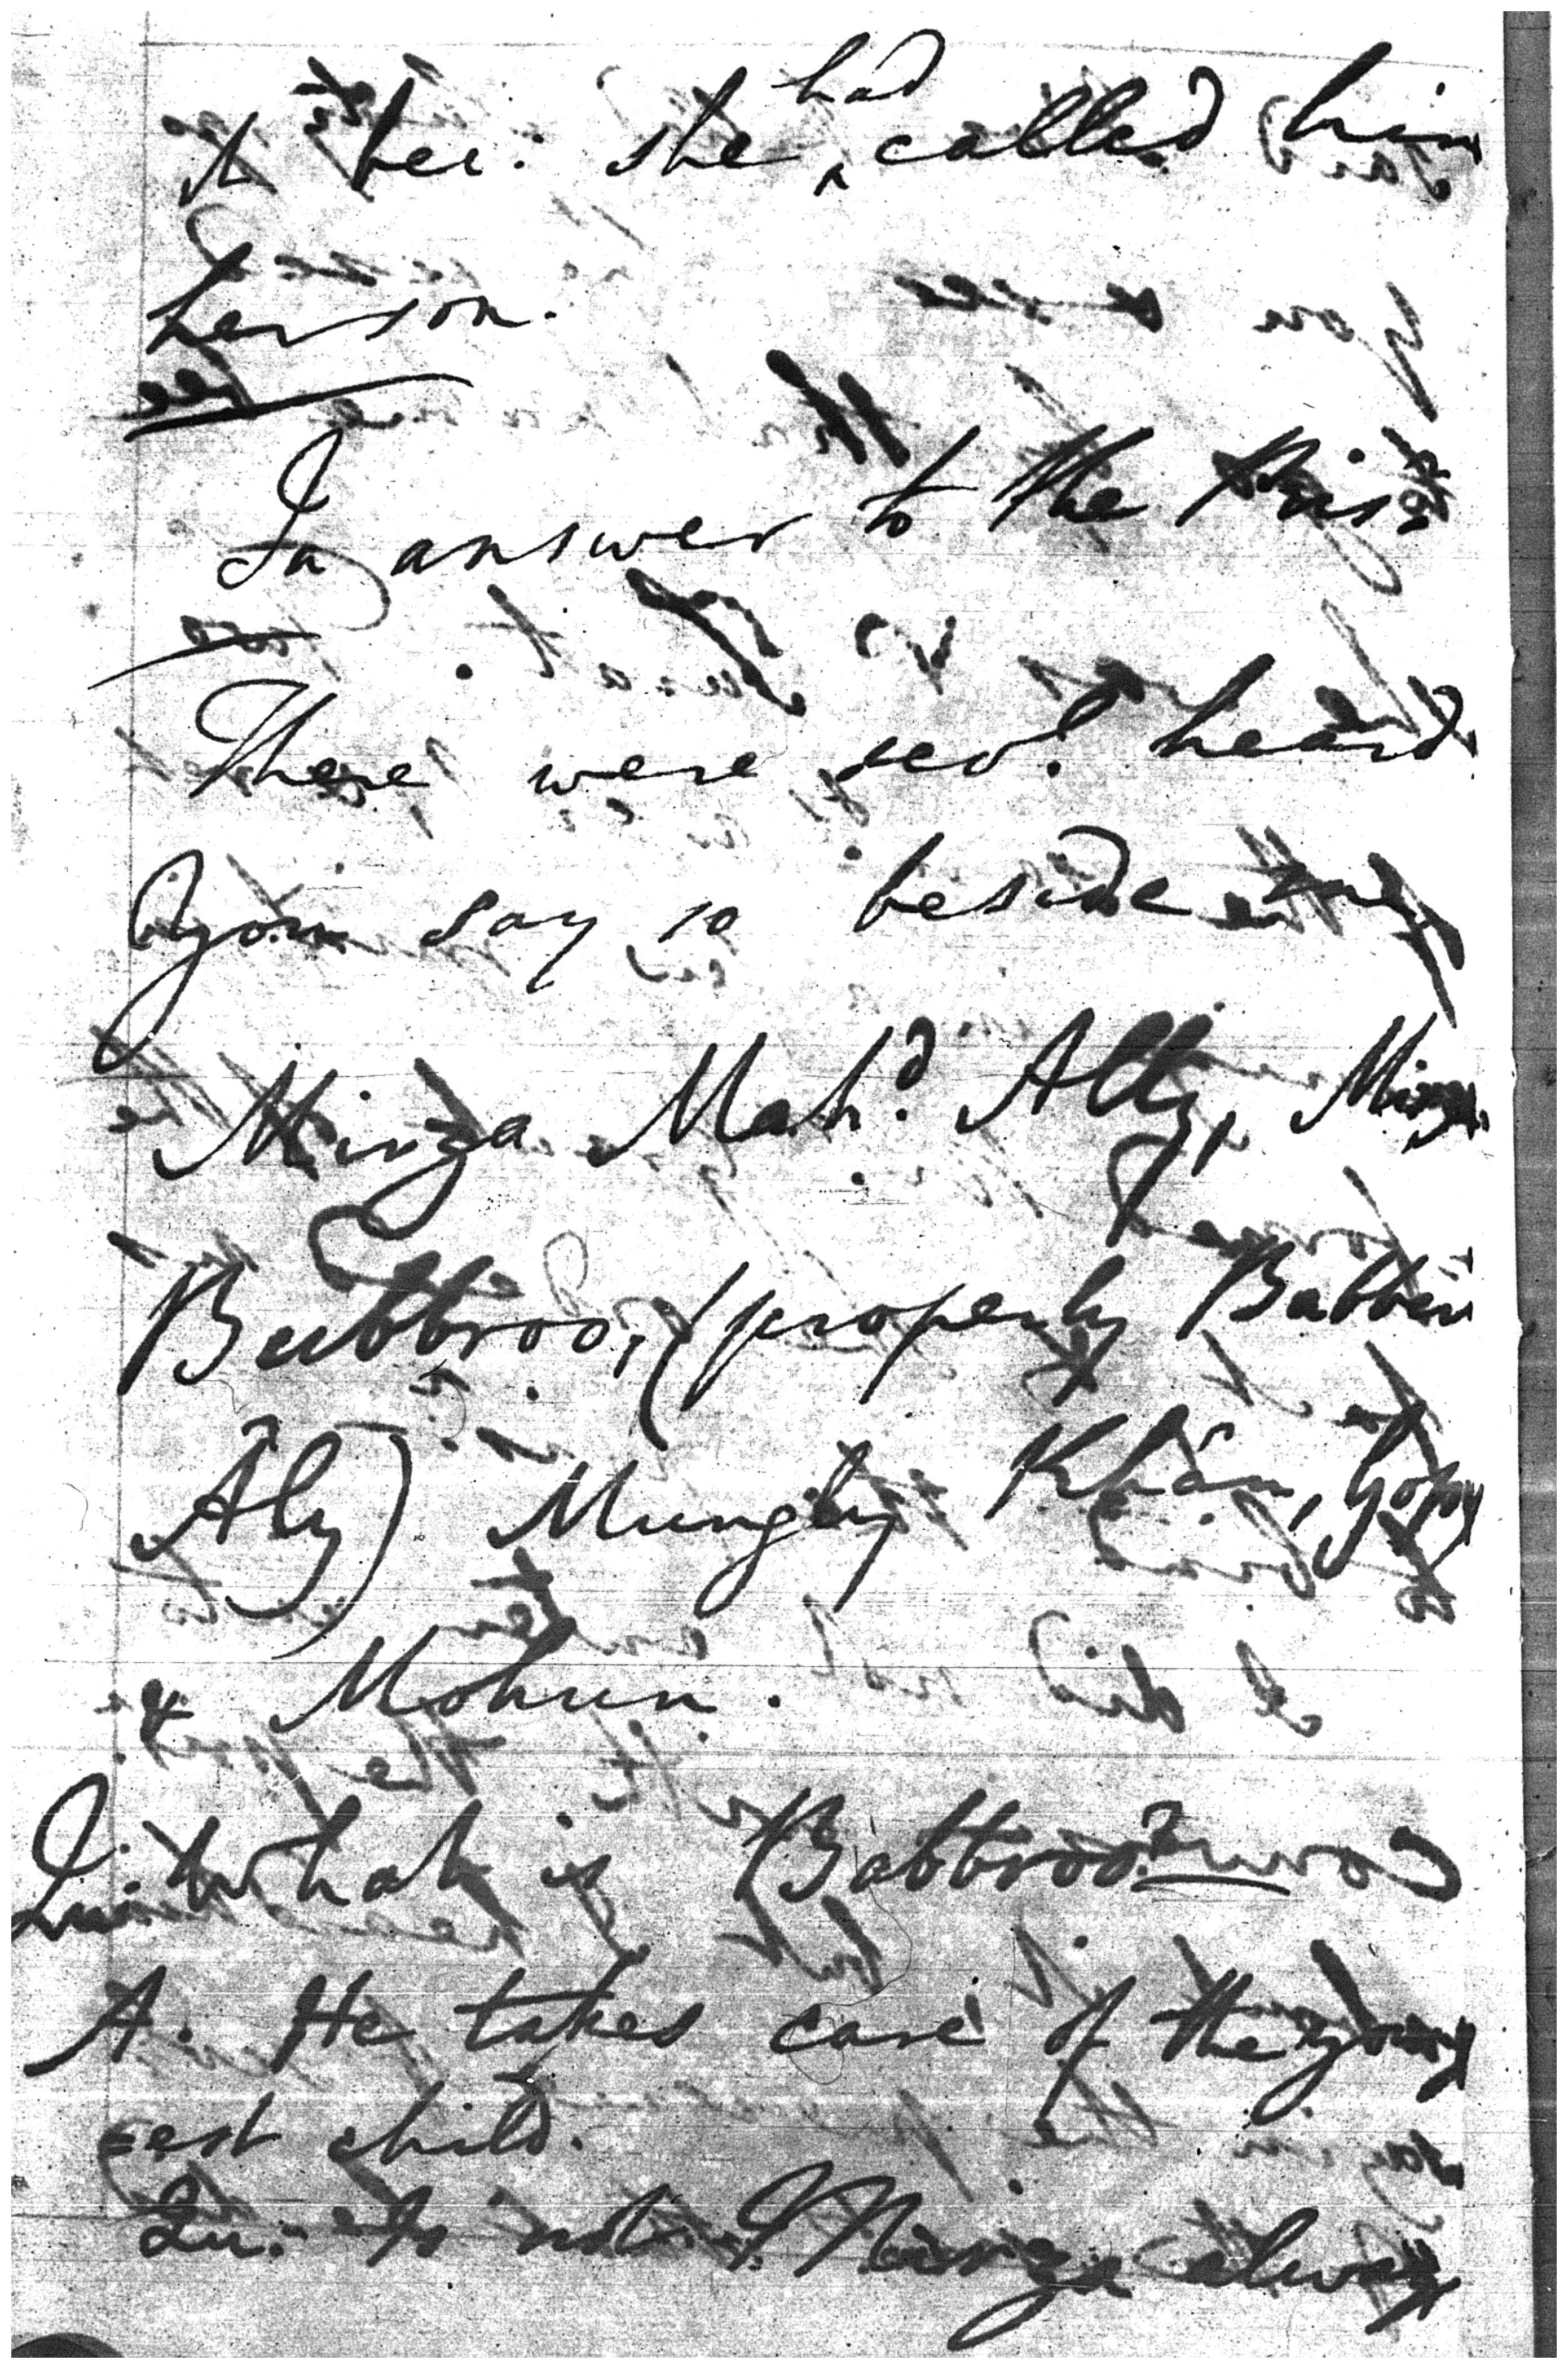 to her. she had called him
her son.
In answer to the
There were sevl. heard
you say so beside me
Mirza Mahd. Ally, Mirza
Bubbroo, (properly Babber
Aly) Mungly Khan, Gopy
& Mohun.
Qu: What is Babbroo?
A. He takes care of the young
est child.
Qu: Is not Mirza always